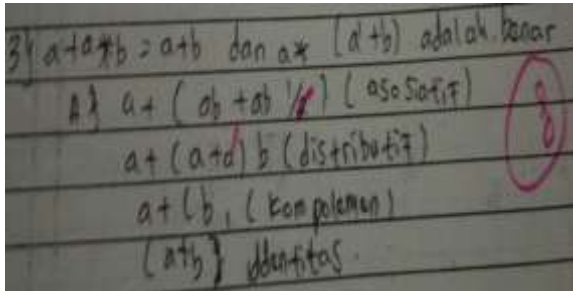 3} a+a*b = a+b dan a* (a'+b) adalah benar
A} a + (ab + ab (asosiatif)
a + (a+a') b (distributif)
a + (b, (kompolemen)
(a+b} Identitas.
8